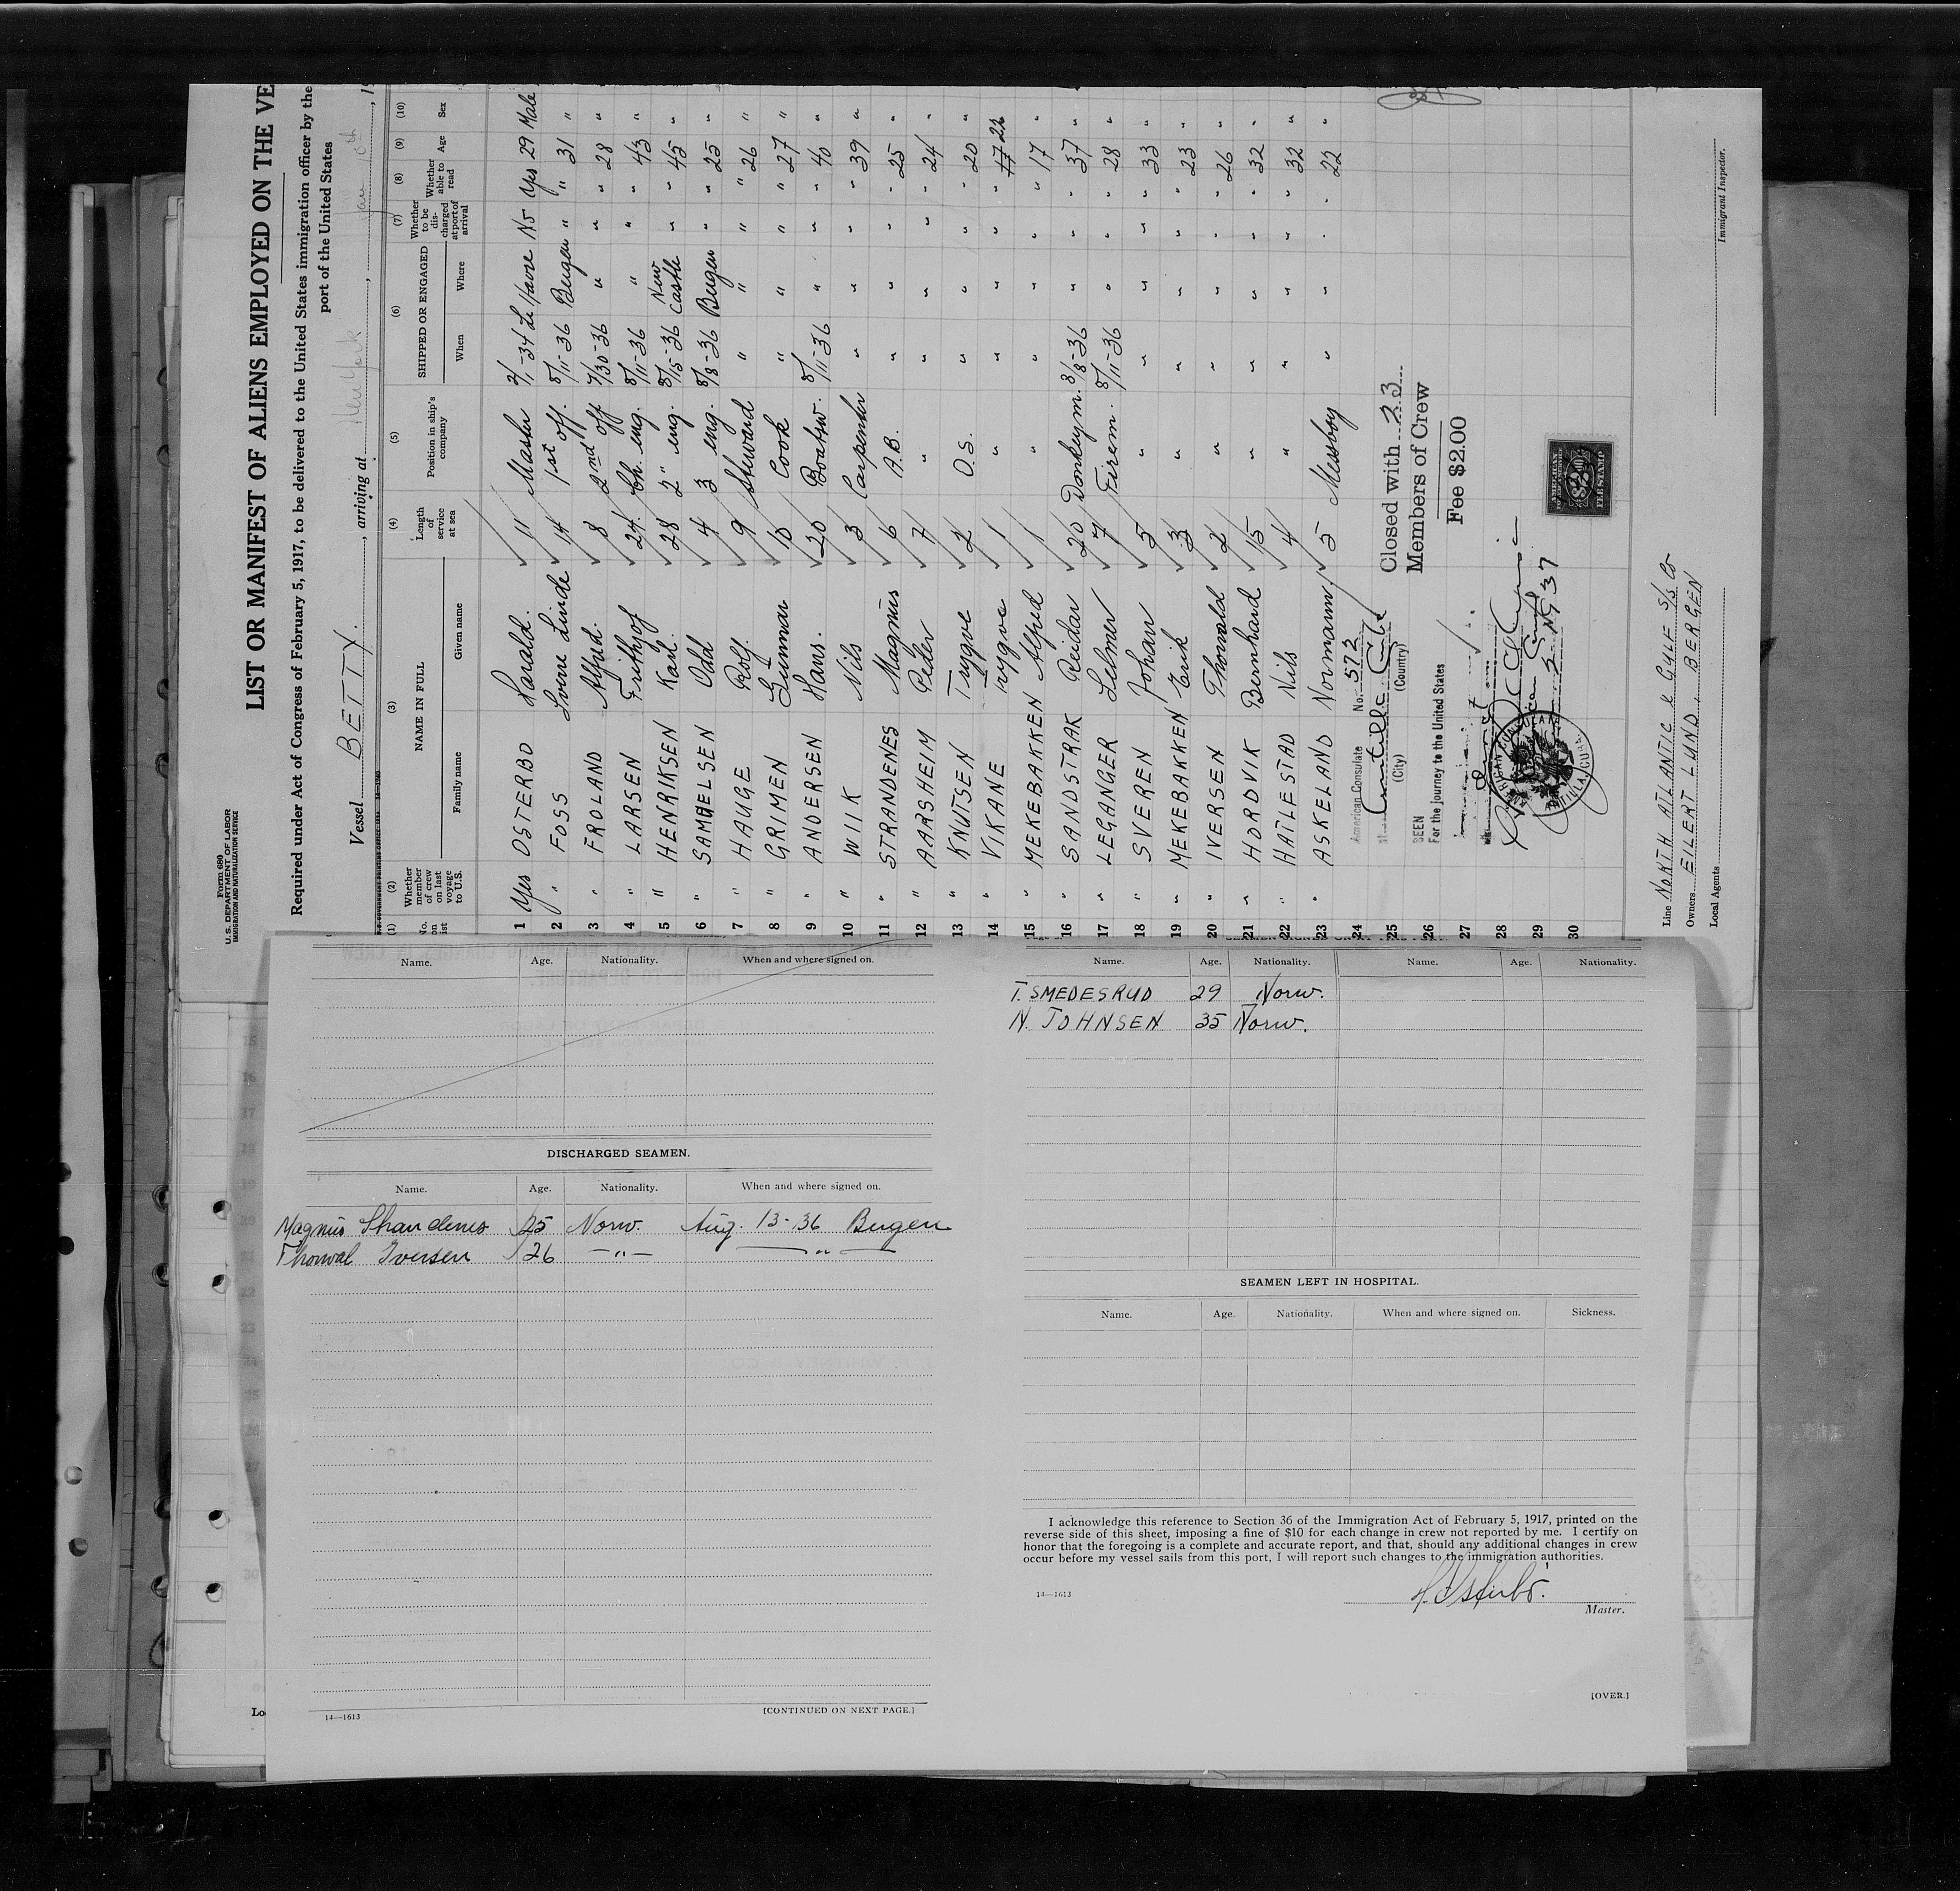 Form 680
U. S. DEPARTMENT OF LABOR
IMMIGRATION AND NATURALIZATION SERVICE
LIST OR MANIFEST OF ALIENS EMPLOYED ON THE VE
Required under Act of Congress of February 5, 1917, to be delivered to the United States immigration officer by the
port of the United States
Vessel BETTY. , arriving at New York , Jan 6th , 19
(1) (2) (3) (4) (5) (6) (7) (8) (9) (10)
No. on list Whether member of crew on last voyage to U.S. NAME IN FULL Length of service at sea Position in ship's company SHIPPED OR ENGAGED Whether to be discharged at port of arrival Whether able to read Age Sex
Family name Given name When Where
1 Yes OSTERBO Harald. 11 Master 2/1-34 Le Havre No Yes 29 Male
2 " FOSS Sverre Linde 14 1st off. 8/11-36 Bergen " " 31 "
3 " FROLAND Alfred. 8 2nd off 7/30-36 " " " 28 "
4 " LARSEN Frithjof 24. Ch. eng. 8/11-36 " " " 43 "
5 " HENRIKSEN Kai. 28 2" eng. 8/15-36 New Castle " " 45 "
6 " SAMUELSEN Odd 4 3 eng. 8/8-36 Bergen " " 25 "
7 " HAUGE Rolf. 9 Steward " " " " 26 "
8 " GRIMEN Gunnar 10 Cook " " " " 27 "
9 " ANDERSEN Hans. 20 Boatsw. 8/11-36 " " " 40 "
10 " WIIK Nils 3 Carpenter " " " " 39 "
11 " STRANDENES Magnus 6 A.B. " " " " 25 "
12 " AARSHEIM Peder 7 " " " " " 24 "
13 " KNUTSEN Trygve 2 O.S. " " " " 20 "
14 " VIKANE Trygve 1 " " " " " 17 22 "
15 MEKEBAKKEN Alfred 1 " " " " " 17 "
16 " SANDSTRAK Reidar 20 Donkeym. 8/8-36 " " " 37 "
17 " LEGANGER Helmer 7 Firem. 8/11-36 " " " 28 "
18 " SVEREN Johan 5 " " " " " 33 "
19 " MEKEBAKKEN Erik 3 " " " " " 23 "
20 " IVERSEN Thorvald 2 " " " " " 26 "
21 " HORDVIK Bernhard 15 " " " " " 32 "
22 " HATLESTAD Nils 4 " " " " " 32 "
23 " ASKELAND Normann 5 Messboy " " " " 22 "
24
25
26
27
28
29
30
American Consulate No. 572
Antilla Cuba
(City) (Country)
SEEN
For the journey to the United States
AMERICAN CONSULATE
ANTILLA, CUBA.
Closed with 23
Members of Crew
Fee $2.00
AMERICAN
$2.00
FEE STAMP
Line NORTH ATLANTIC & GULF S/S Co
Owners EILERT LUND, BERGEN
Local Agents
Immigrant Inspector.
Name. Age. Nationality. When and where signed on.
DISCHARGED SEAMEN.
Name. Age. Nationality. When and where signed on.
Magnus Strandenes 25 Norw. Aug. 13-36 Bergen
Thorval Iversen 26 —"— —"—
14—1613
[CONTINUED ON NEXT PAGE.]
Name. Age. Nationality. Name. Age. Nationality.
T. SMEDESRUD 29 Norw.
N. JOHNSEN 35 Norw.
SEAMEN LEFT IN HOSPITAL.
Name. Age. Nationality. When and where signed on. Sickness.
I acknowledge this reference to Section 36 of the Immigration Act of February 5, 1917, printed on the
reverse side of this sheet, imposing a fine of $10 for each change in crew not reported by me. I certify on
honor that the foregoing is a complete and accurate report, and that, should any additional changes in crew
occur before my vessel sails from this port, I will report such changes to the immigration authorities.
14—1613
H. Osterbö.
Master.
[OVER.]